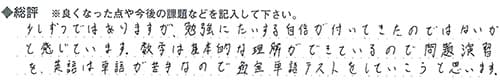 ◆総評 ※良くなった点や今後の課題などを記入して下さい。
少しずつではありますが、勉強にたいする自信が付いてきたのではないか
と感じています。数学は基本的な理解ができているので問題演習
を、英語は単語が苦手なので毎金単語テストをしていこうと思います。